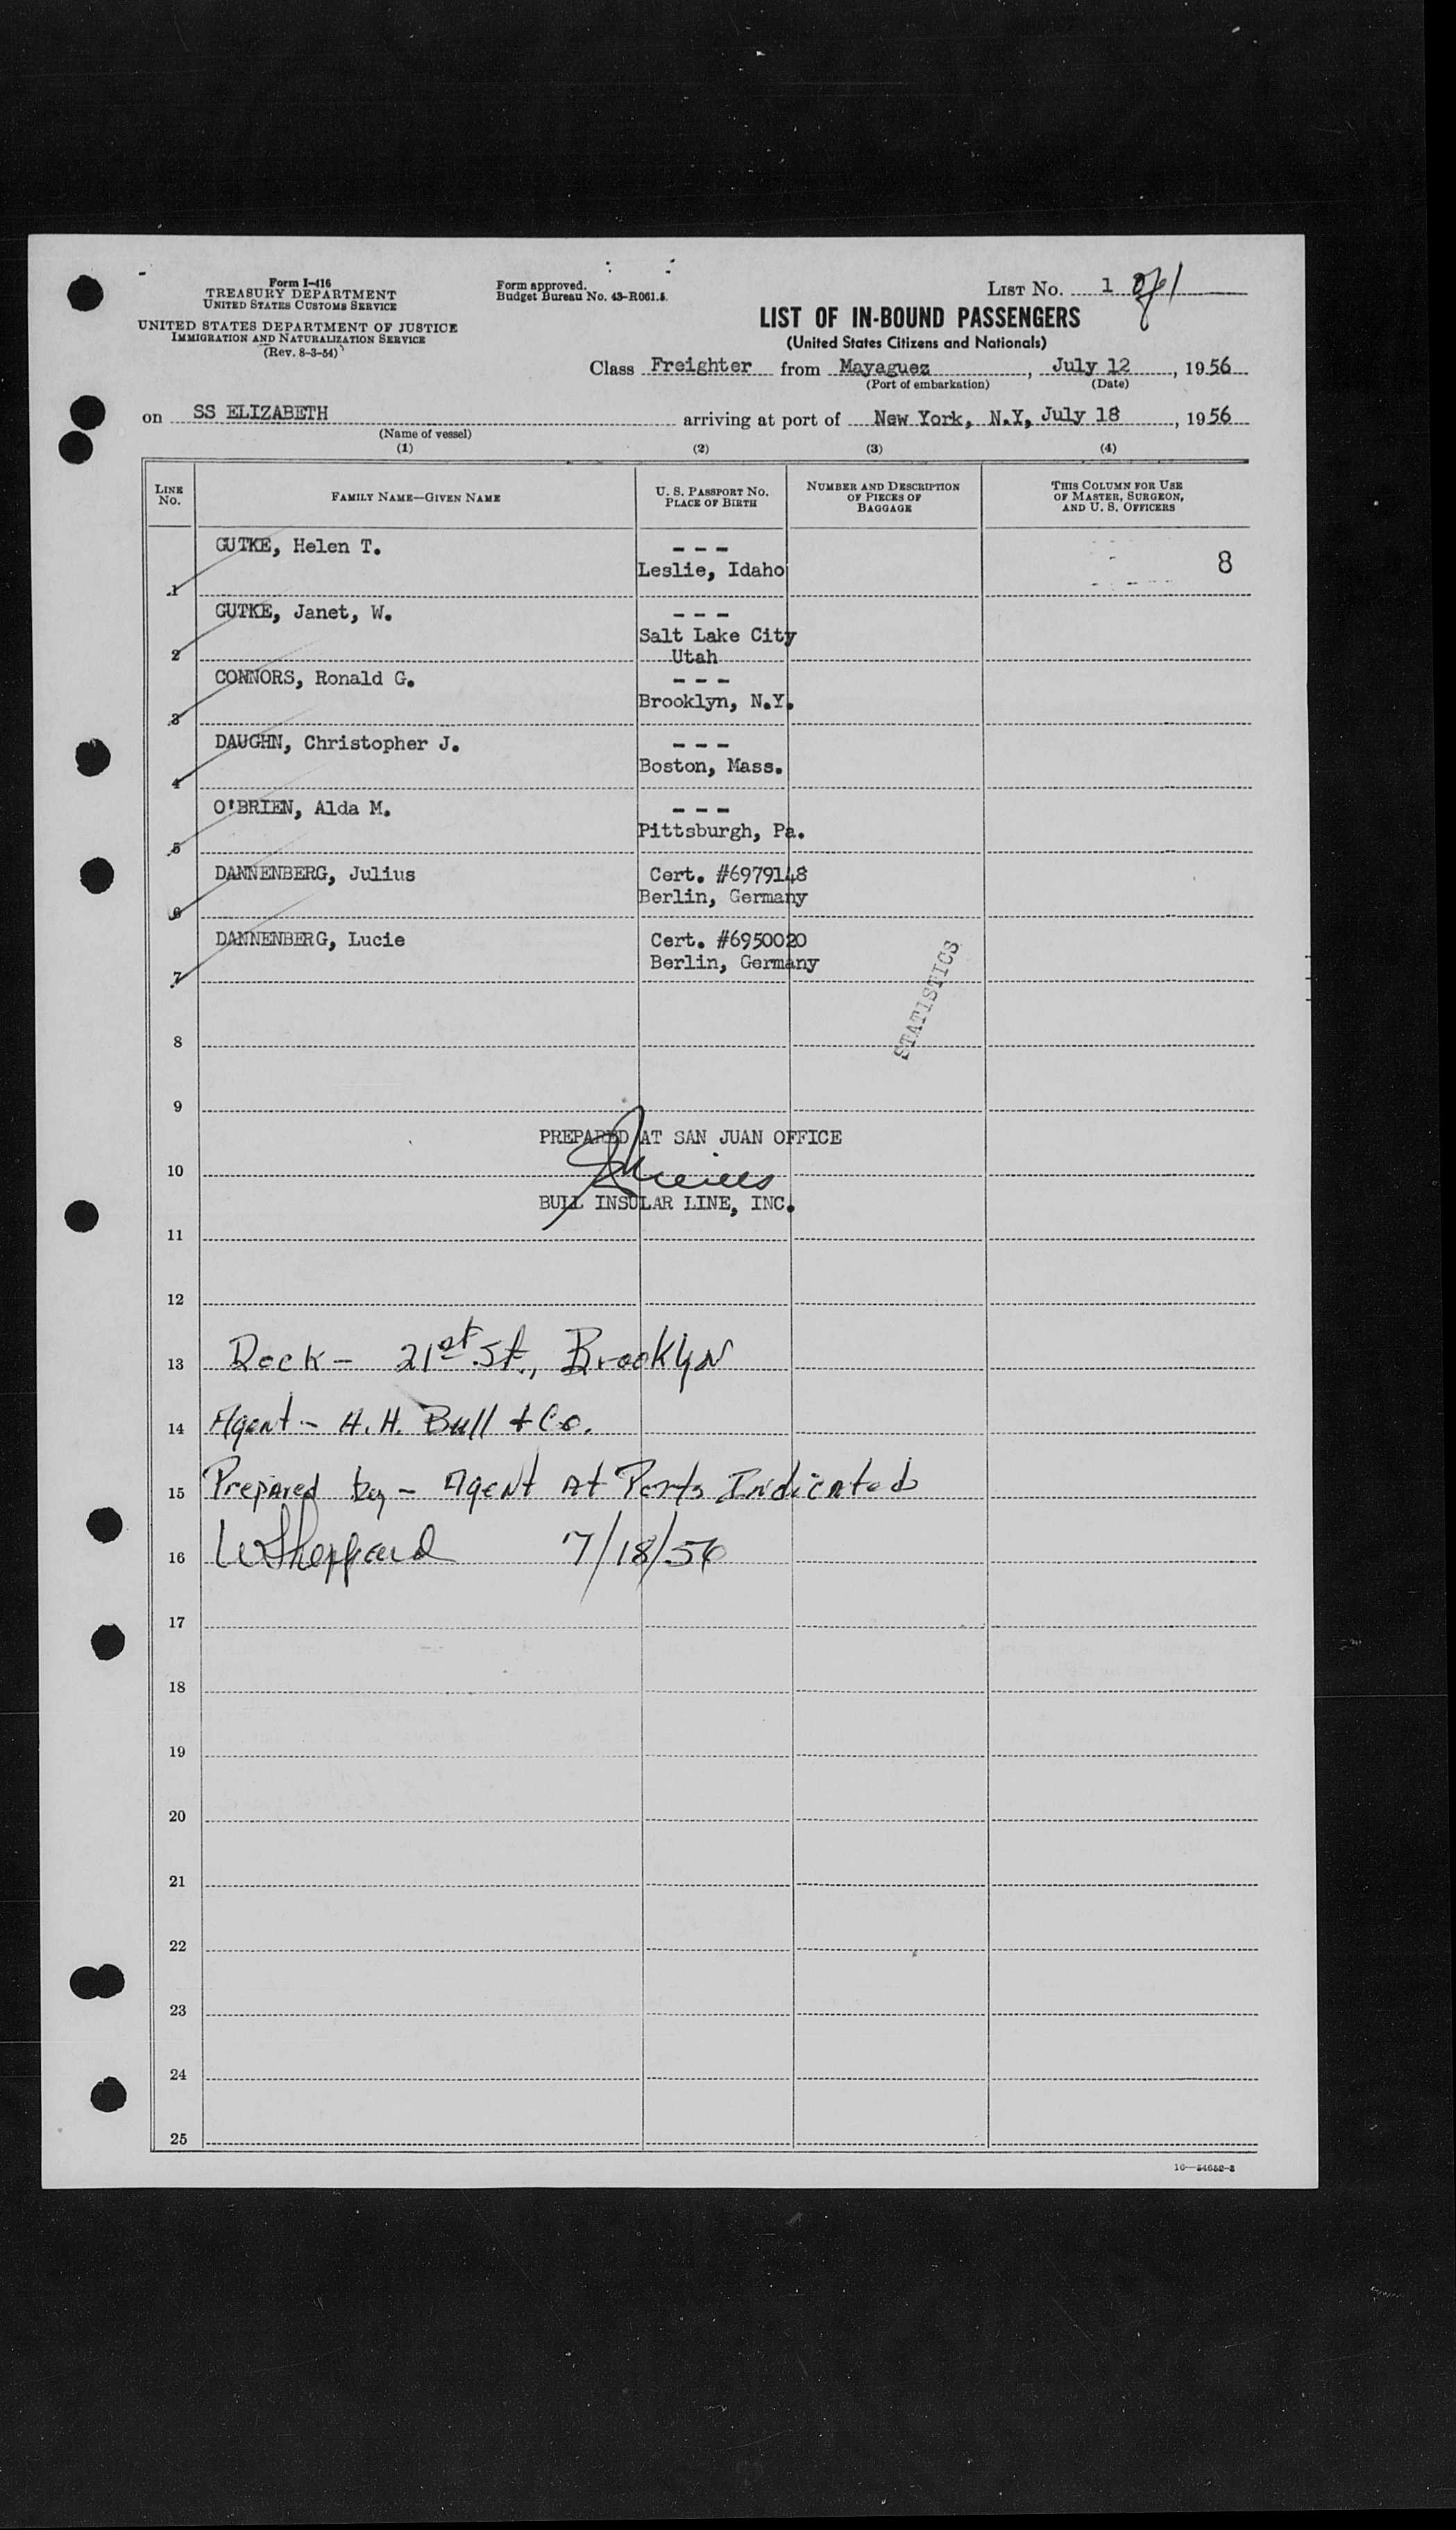 Form I-416
TREASURY DEPARTMENT
UNITED STATES CUSTOMS SERVICE
UNITED STATES DEPARTMENT OF JUSTICE
IMMIGRATION AND NATURALIZATION SERVICE
(Rev. 8-3-54)
Form approved.
Budget Bureau No. 43-R061.5.
LIST No. 1 of 1
LIST OF IN-BOUND PASSENGERS
(United States Citizens and Nationals)
Class Freighter from Mayaguez, July 12, 1956
(Port of embarkation) (Date)
on SS ELIZABETH arriving at port of New York, N.Y, July 18, 1956
(Name of vessel)
(1) (2) (3) (4)
LINE No. FAMILY NAME—GIVEN NAME U. S. PASSPORT No. PLACE OF BIRTH NUMBER AND DESCRIPTION OF PIECES OF BAGGAGE THIS COLUMN FOR USE OF MASTER, SURGEON, AND U. S. OFFICERS
GUTKE, Helen T. - - -
1 Leslie, Idaho 8
GUTKE, Janet, W. - - -
Salt Lake City
2 Utah
CONNORS, Ronald G. - - -
3 Brooklyn, N.Y.
DAUGHN, Christopher J. - - -
4 Boston, Mass.
O'BRIEN, Alda M. - - -
5 Pittsburgh, Pa.
DANNENBERG, Julius Cert. #6979148
6 Berlin, Germany
DANNENBERG, Lucie Cert. #6950020
7 Berlin, Germany
STATISTICS
8
9
PREPARED AT SAN JUAN OFFICE
10
BULL INSULAR LINE, INC.
11
12
13 Dock - 21st St., Brooklyn
14 Agent - A. H. Bull & Co.
15 Prepared by - Agent At Ports Indicated
16 W Sheppard 7/18/56
17
18
19
20
21
22
23
24
25
16—54652-3